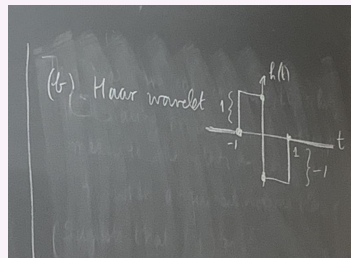 (b) Haar wavelet
h(t)
1
t
-1
1
-1